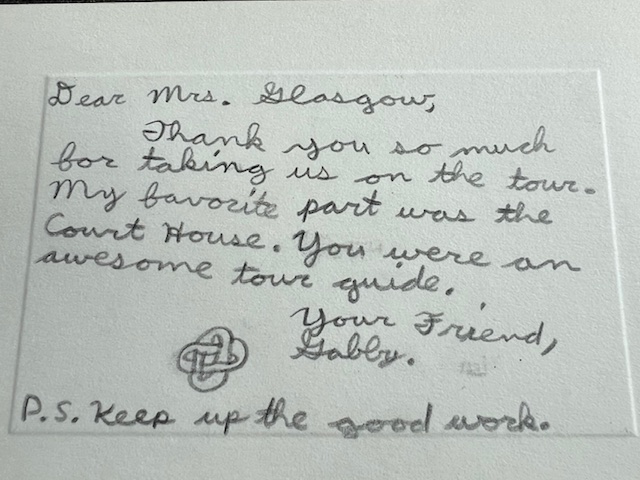 Dear Mrs. Glasgow,
Thank you so much
for taking us on the tour.
My favorite part was the
Court House. You were an
awesome tour guide.
Your Friend,
Gabby.
P.S. Keep up the good work.